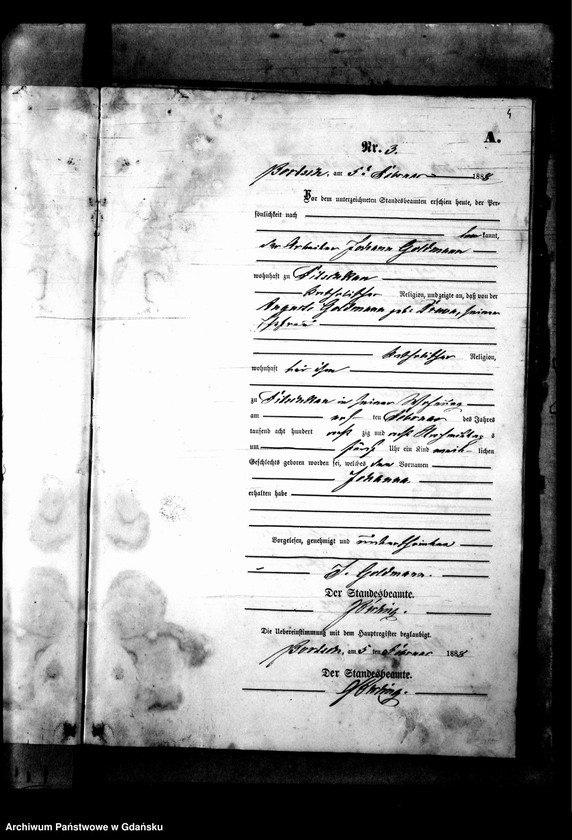 4
A.
Nr. 3.
am 5. Februar 188
Vor dem unterzeichneten Standesbeamten erschien heute, der Per-
sönlichkeit nach
kannt,
der Arbeiter Johann Goldmann
wohnhaft zu
katholischer Religion, und zeigte an, daß von der
Auguste Goldmann geb. seiner
Ehefrau
katholischer Religion,
wohnhaft bei ihm
zu in seiner Wohnung
am ten Februar des Jahres
tausend acht hundert acht zig und acht Nachmittag s
um fünf Uhr ein Kind weib- lichen
Geschlechts geboren worden sei, welches den Vornamen
Johanna
erhalten habe
Vorgelesen, genehmigt und unterschrieben
J. Goldmann.
Der Standesbeamte.
Die Uebereinstimmung mit dem Hauptregister beglaubigt.
am 5 ten Februar 1888
Der Standesbeamte.
Archiwum Państwowe w Gdańsku